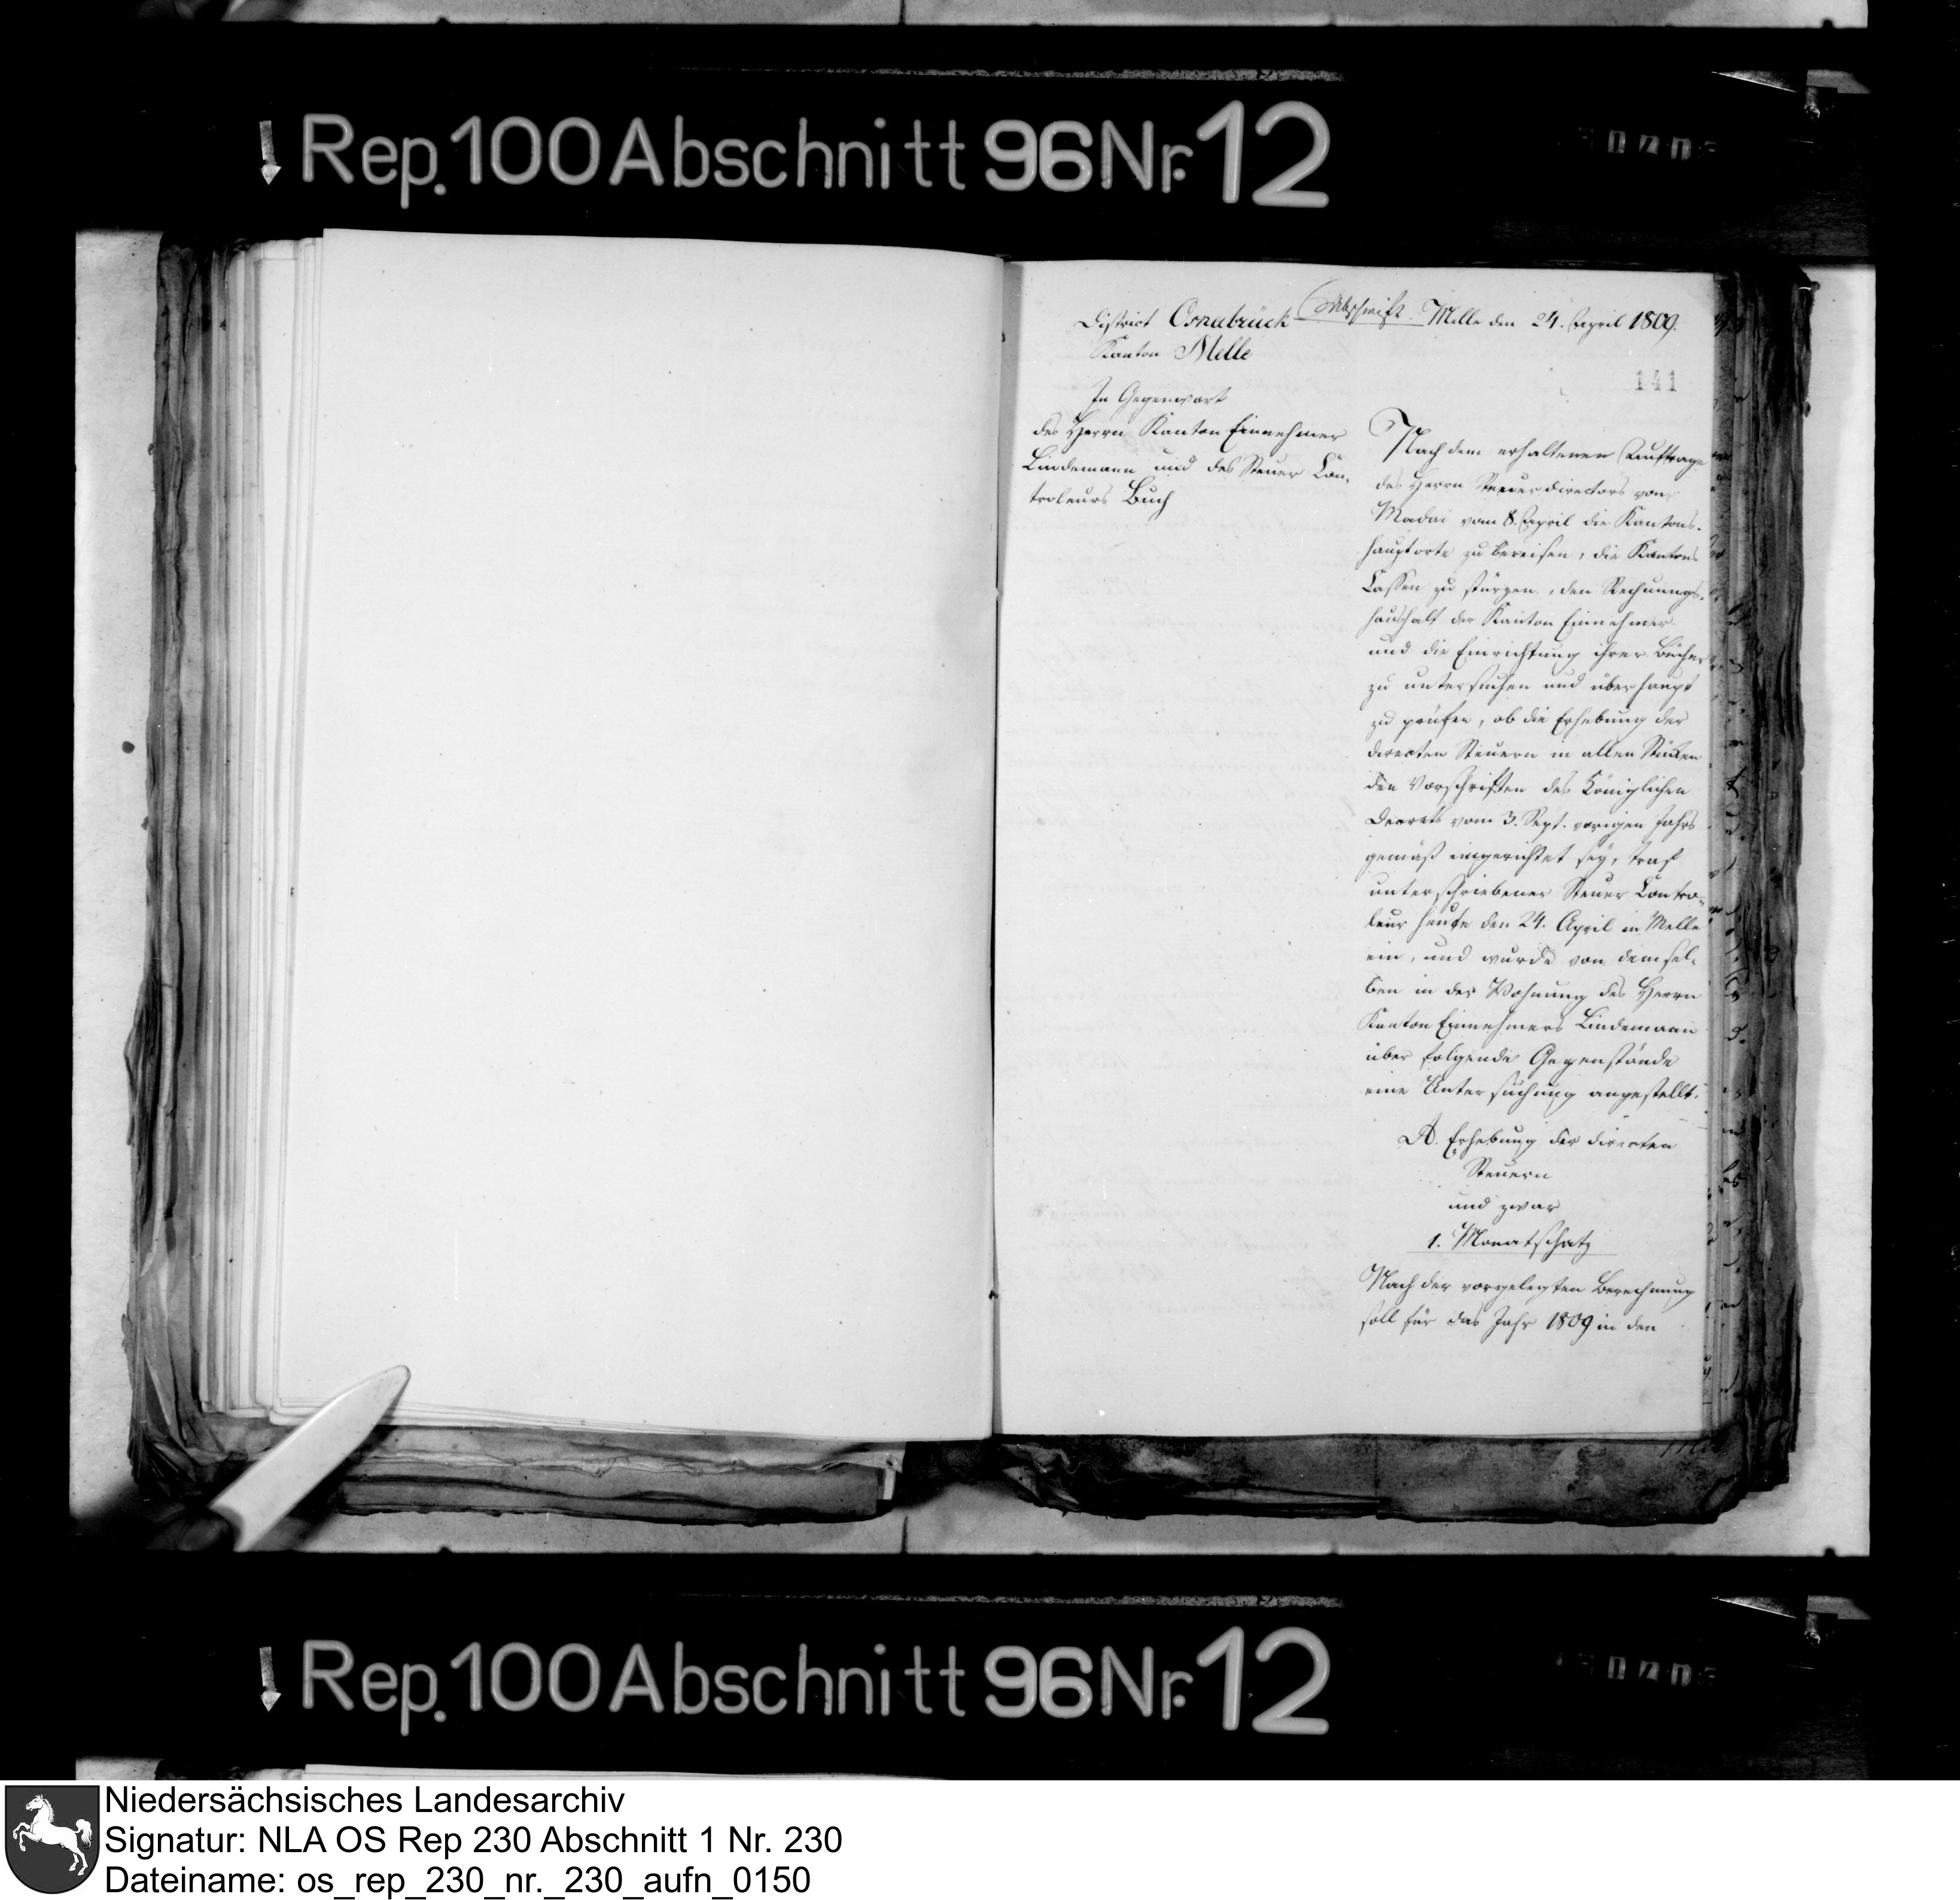 Rep. 100 Abschnitt 96 Nr. 12
District Osnabrück Abschrift. Melle den 24. April 1809.
Kanton Melle
141
In Gegenwart
des Herrn Kanton Einnehmer
Lindemann und des Steuer Con-
troleurs Buch
Nach dem erhaltenen Auftrage
des Herrn Steuerdirectors von
Madai vom 8. April die Kantons-
hauptorte zu bereisen, die Kantons
Cassen zu stürzen, den Rechnungs-
haushalt der Kanton Einnehmer
und die Einrichtung ihrer Bücher
zu untersuchen und überhaupt
zu prüfen, ob die Erhebung der
directen Steuern in allen Stücken
den Vorschriften des Königlichen
Decrets vom 3. Sept. vorigen Jahrs
gemäß eingerichtet sey, traf
unterschriebener Steuer Contro-
leur heute den 24. April in Melle
ein, und wurde von demsel-
ben in der Wohnung des Herrn
Kanton Einnehmers Lindemann
über folgende Gegenstände
eine Untersuchung angestellt.
A. Erhebung der directen
Steuern
und zwar
1. Monatschatz
Nach der vorgelegten Berechnung
soll für das Jahr 1809 in den
Rep. 100 Abschnitt 96 Nr. 12
Niedersächsisches Landesarchiv
Signatur: NLA OS Rep 230 Abschnitt 1 Nr. 230
Dateiname: os_rep_230_nr._230_aufn_0150